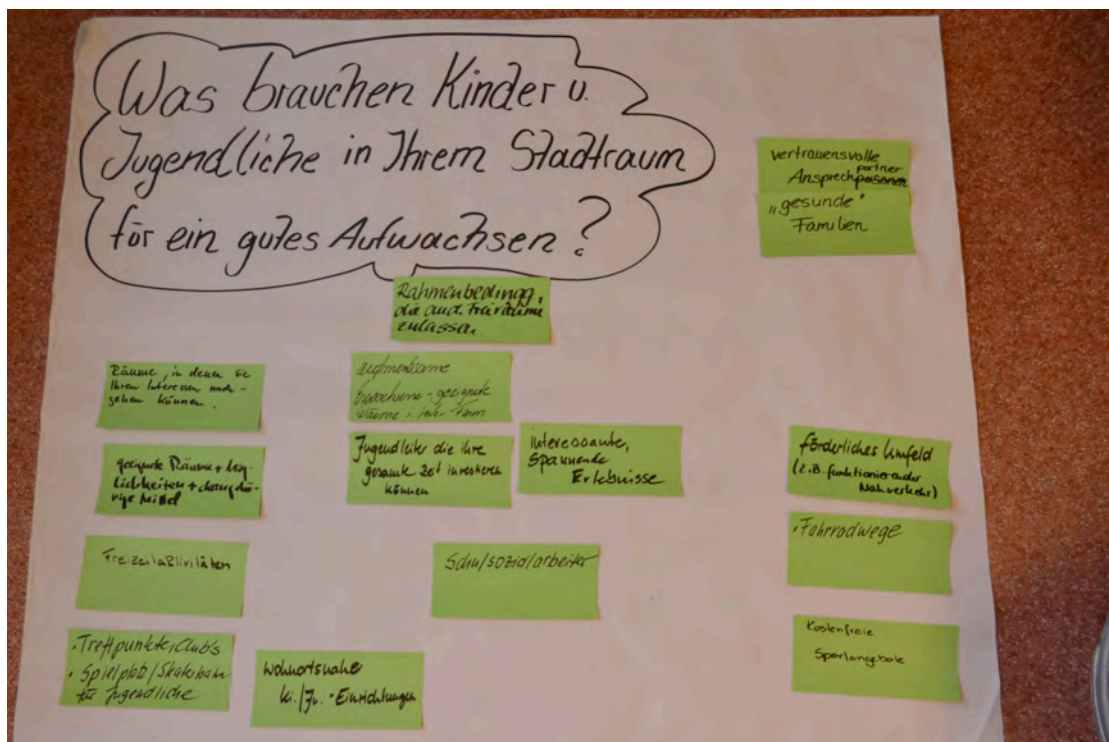 Was brauchen Kinder u.
Jugendliche in Ihrem Stadtraum
für ein gutes Aufwachsen?
vertrauensvolle
partner
Ansprechpersonen
„gesunde"
Familien
Rahmenbedingg,
die auch Freiräume
zulassen.
Räume, in denen sie
Ihren Interessen nach-
gehen können.
aufmerksame
Erwachsene - geeignete
Räume
geeignete Räume + Mög-
lichkeiten + dazugehö-
rige Mittel
Jugendleiter die ihre
gesamte Zeit investieren
können
interessante,
Spannende
Erlebnisse
förderliches Umfeld
(z.B. funktionierender
Nahverkehr)
Freizeitaktivitäten
Schulsozialarbeiter
• Fahrradwege
• Treffpunkte, Clubs
• Spielplatz/Skatebahn
für Jugendliche
wohnortnahe
Ki./Ju. - Einrichtungen
Kostenfreie
Sportangebote